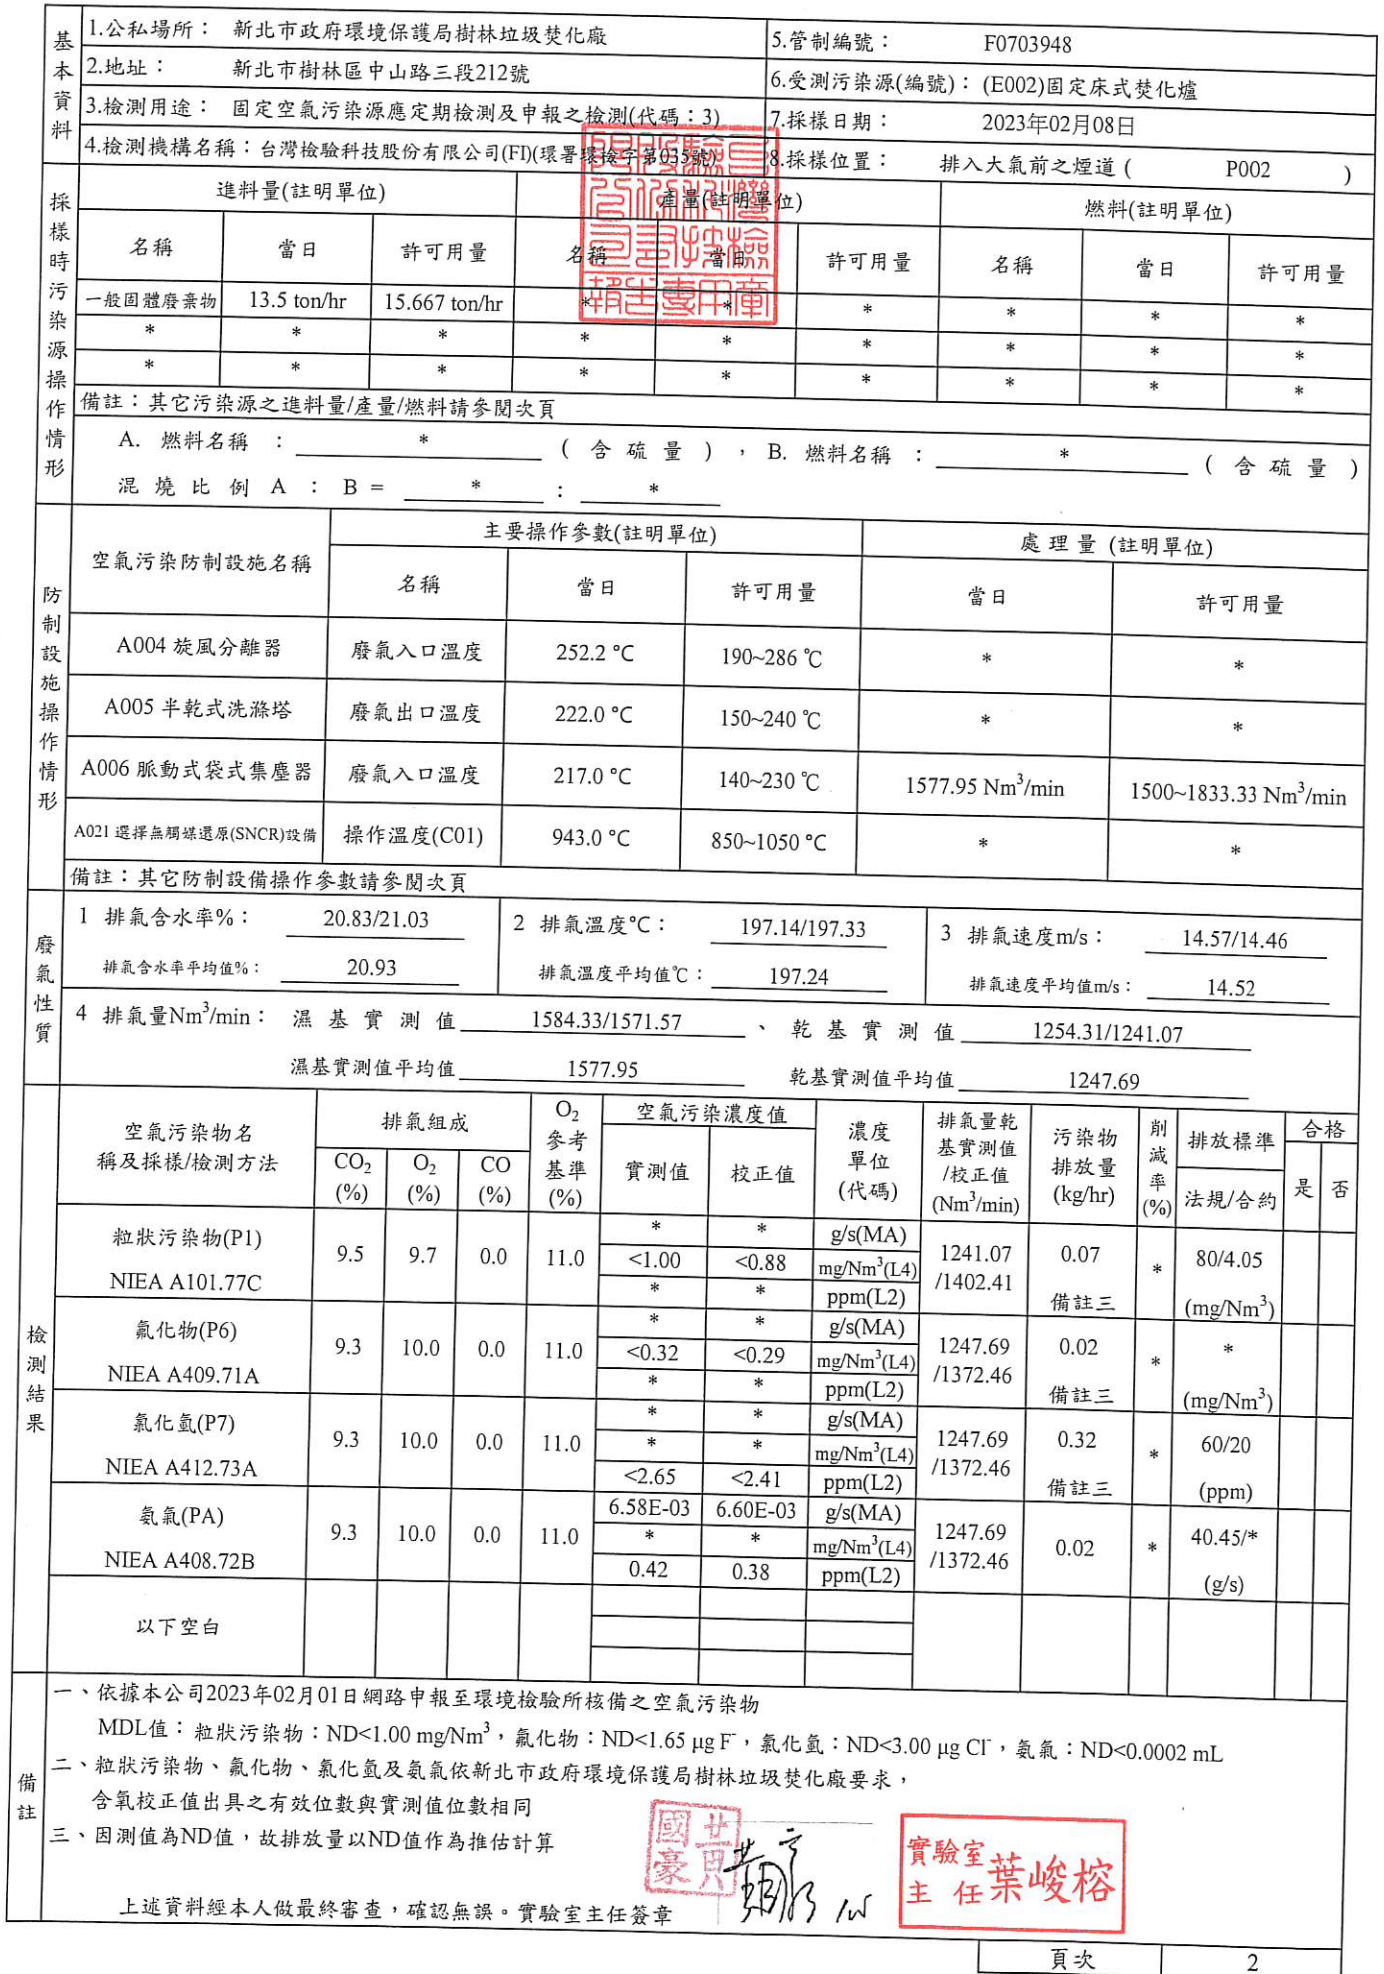 基本資料
1.公私場所： 新北市政府環境保護局樹林垃圾焚化廠
5.管制編號： F0703948
2.地址： 新北市樹林區中山路三段212號
6.受測污染源(編號)： (E002)固定床式焚化爐
3.檢測用途： 固定空氣污染源應定期檢測及申報之檢測(代碼：3)
7.採樣日期： 2023年02月08日
4.檢測機構名稱：台灣檢驗科技股份有限公司(FI)(環署環檢字第035號)
8.採樣位置： 排入大氣前之煙道 ( P002 )
採樣時污染源操作情形
進料量(註明單位) 產量(註明單位) 燃料(註明單位)
名稱 當日 許可用量 名稱 當日 許可用量 名稱 當日 許可用量
一般固體廢棄物 13.5 ton/hr 15.667 ton/hr * * * * * *
* * * * * * * * *
* * * * * * * * *
備註：其它污染源之進料量/產量/燃料請參閱次頁
A. 燃料名稱 ： * ( 含 硫 量 ) ， B. 燃料名稱 ： * ( 含 硫 量 )
混 燒 比 例 A ： B = * ： *
防制設施操作情形
空氣污染防制設施名稱 主要操作參數(註明單位) 處理量 (註明單位)
名稱 當日 許可用量 當日 許可用量
A004 旋風分離器 廢氣入口溫度 252.2 °C 190~286 ℃ * *
A005 半乾式洗滌塔 廢氣出口溫度 222.0 °C 150~240 ℃ * *
A006 脈動式袋式集塵器 廢氣入口溫度 217.0 °C 140~230 ℃ 1577.95 Nm³/min 1500~1833.33 Nm³/min
A021 選擇無觸媒還原(SNCR)設備 操作溫度(C01) 943.0 °C 850~1050 °C * *
備註：其它防制設備操作參數請參閱次頁
廢氣性質
1 排氣含水率%： 20.83/21.03 2 排氣溫度°C： 197.14/197.33 3 排氣速度m/s： 14.57/14.46
排氣含水率平均值%： 20.93 排氣溫度平均值℃： 197.24 排氣速度平均值m/s： 14.52
4 排氣量Nm³/min： 濕 基 實 測 值 1584.33/1571.57 、 乾 基 實 測 值 1254.31/1241.07
濕基實測值平均值 1577.95 乾基實測值平均值 1247.69
檢測結果
空氣污染物名稱及採樣/檢測方法 排氣組成 O₂參考基準(%) 空氣污染濃度值 濃度單位(代碼) 排氣量乾基實測值/校正值(Nm³/min) 污染物排放量(kg/hr) 削減率(%) 排放標準 合格
CO₂(%) O₂(%) CO(%) 實測值 校正值 法規/合約 是 否
粒狀污染物(P1) NIEA A101.77C 9.5 9.7 0.0 11.0 * * g/s(MA) 1241.07/1402.41 0.07 備註三 * 80/4.05 (mg/Nm³)
<1.00 <0.88 mg/Nm³(L4)
* * ppm(L2)
氟化物(P6) NIEA A409.71A 9.3 10.0 0.0 11.0 * * g/s(MA) 1247.69/1372.46 0.02 備註三 * * (mg/Nm³)
<0.32 <0.29 mg/Nm³(L4)
* * ppm(L2)
氯化氫(P7) NIEA A412.73A 9.3 10.0 0.0 11.0 * * g/s(MA) 1247.69/1372.46 0.32 備註三 * 60/20 (ppm)
* * mg/Nm³(L4)
<2.65 <2.41 ppm(L2)
氨氣(PA) NIEA A408.72B 9.3 10.0 0.0 11.0 6.58E-03 6.60E-03 g/s(MA) 1247.69/1372.46 0.02 * 40.45/* (g/s)
* * mg/Nm³(L4)
0.42 0.38 ppm(L2)
以下空白
備註
一、依據本公司2023年02月01日網路申報至環境檢驗所核備之空氣污染物
MDL值：粒狀污染物：ND<1.00 mg/Nm³，氟化物：ND<1.65 μg F⁻，氯化氫：ND<3.00 μg Cl⁻，氨氣：ND<0.0002 mL
二、粒狀污染物、氟化物、氯化氫及氨氣依新北市政府環境保護局樹林垃圾焚化廠要求，
含氧校正值出具之有效位數與實測值位數相同
三、因測值為ND值，故排放量以ND值作為推估計算
上述資料經本人做最終審查，確認無誤。實驗室主任簽章
實驗室主任 葉峻榕
頁次 2